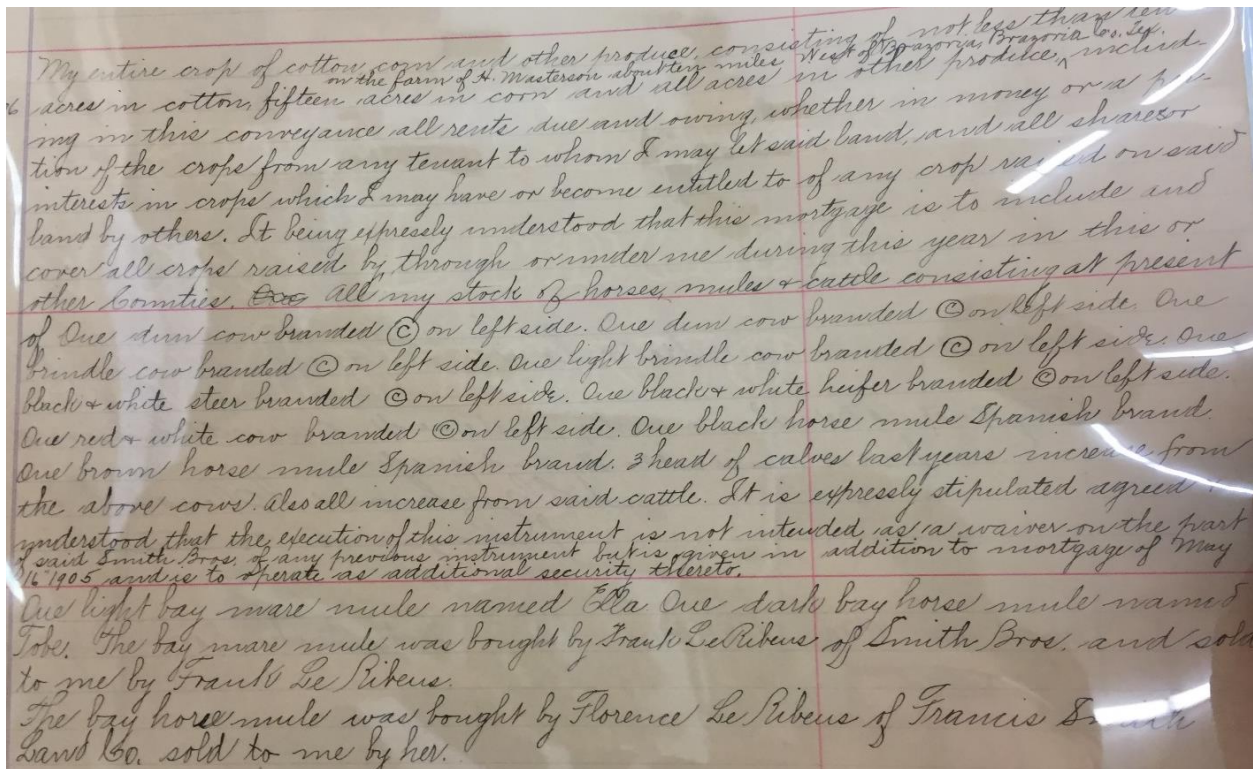 My entire crop of cotton, corn and other produce, consisting of not less than ten
on the farm of H. Masterson about ten miles West of Brazoria, Brazoria Co. Tex.
acres in cotton, fifteen acres in corn and all acres in other produce, ^ includ-
ing in this conveyance all rents due and owing, whether in money or a por-
tion of the crops from any tenant to whom I may let said land, and all shares or
interests in crops which I may have or become entitled to of any crop raised on said
land by others. It being expressly understood that this mortgage is to include and
cover all crops raised by through or under me during this year in this or
other Counties. All my stock of horses, mules & cattle consisting at present
of One dun cow branded © on left side. One dun cow branded © on left side. One
brindle cow branded © on left side. One light brindle cow branded © on left side. One
black & white steer branded © on left side. One black & white heifer branded © on left side.
One red & white cow branded © on left side. One black horse mule Spanish brand.
One brown horse mule Spanish brand. 3 head of calves last years increase from
the above cows. Also all increase from said cattle. It is expressly stipulated agreed
understood that the execution of this instrument is not intended as a waiver on the part
of said Smith Bros. of any previous instrument but is given in addition to mortgage of May
16" 1905 and is to operate as additional security thereto.
One light bay mare mule named Ella One dark bay horse mule named
Tobe. The bay mare mule was bought by Frank LeRibeus of Smith Bros. and sold
to me by Frank Le Ribeus.
The bay horse mule was bought by Florence Le Ribeus of Francis Smith
Land Co. sold to me by her.